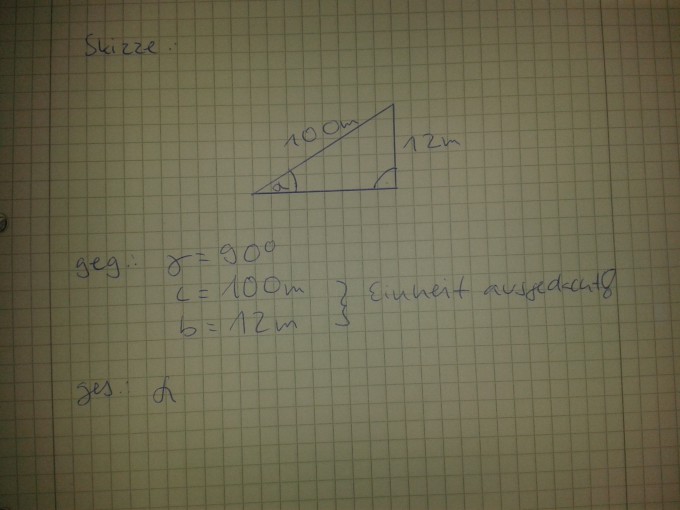 Skizze:
100m
12m
α
geg.: γ = 90°
c = 100m
b = 12m } Einheit ausgedacht
ges.: α